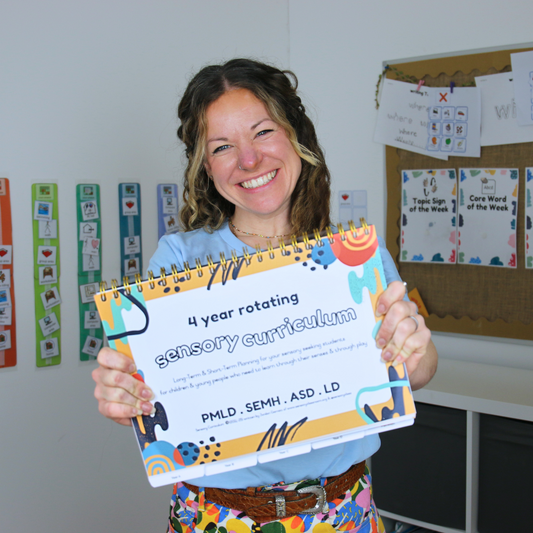 4 year rotating
sensory curriculum
Long-Term & Short-Term Planning for your sensory seeking students
for children & young people who need to learn through their senses & through play
PMLD . SEMH . ASD . LD
writing
where
where
where
Topic Sign of
the Week
Core Word
of the Week